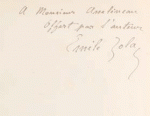 A Monsieur
offert par l'auteur
Emile Zola